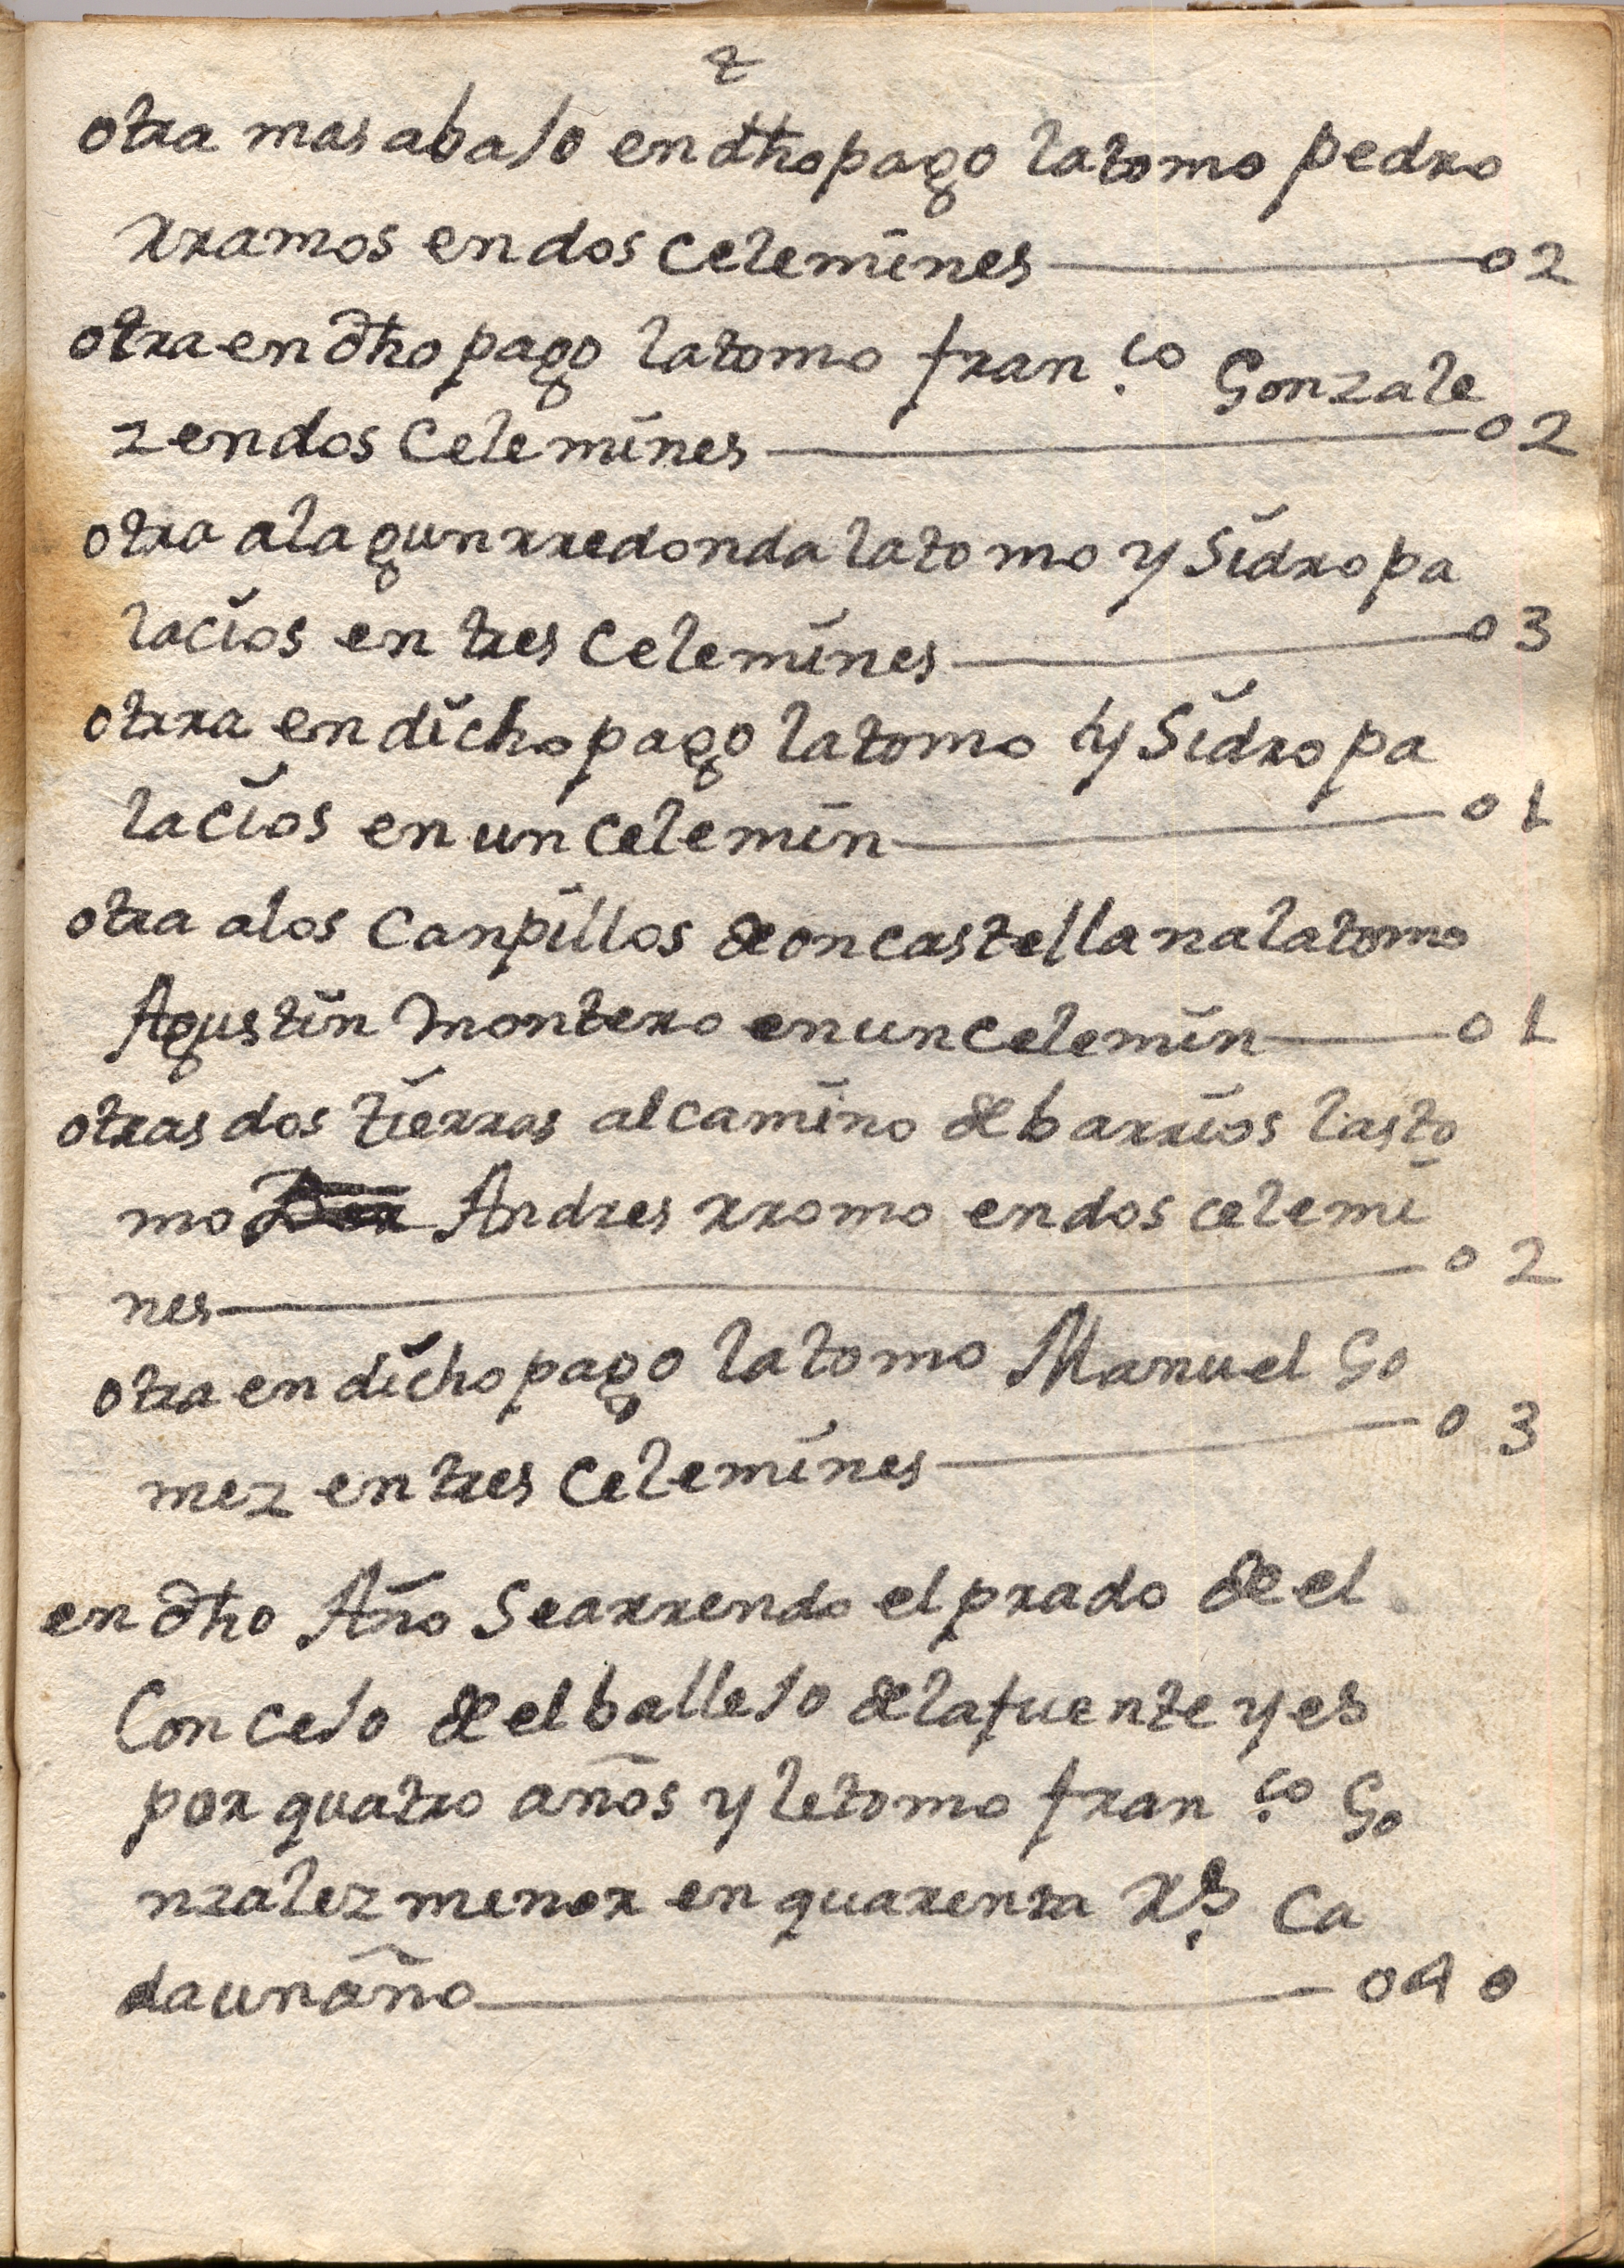 2
otra mas abajo en dho pago la tomo pedro
rramos en dos celemines 02
otra en dho pago la tomo fran.co Gonzale
z en dos Celemines 02
otra a la gunrredonda la tomo ysidro pa
lacios en tres Celemines 03
otrra en dicho pago la tomo ysidro pa
lacios en un celemin 01
otra a los Canpillos de on castellana la tomo
Agustin Montero en un celemin 01
otras dos tierras al camino de barrios las to
mo Andres rromo en dos celemi
nes 02
otra en dicho pago la tomo Manuel Go
mez en tres Celemines 03
en dho Año se arrendo el prado de el
Concejo de el ballejo de la fuente y es
por quatro años y le tomo fran.co Go
nzalez menor en quarenta rs. Ca
da un año 040